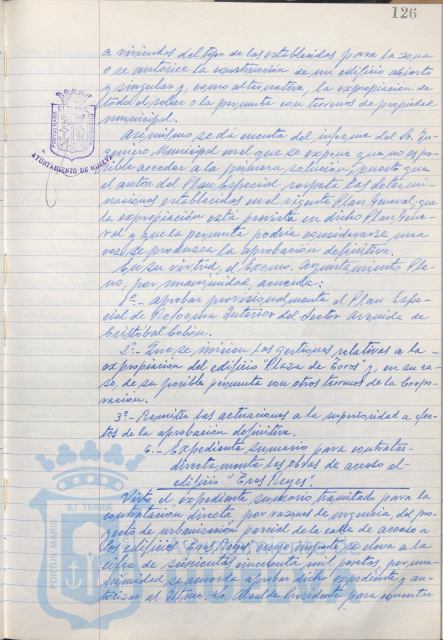 126
a viviendas del tipo de las establecidas para la zona
o se autorice la construcción de un edificio abierto
y singular y, como alternativa, la expropiación de
todo el solar o la permuta con terrenos de propiedad
municipal.
Asimismo se da cuenta del informe del Sr. In-
geniero Municipal en el que se expone que no es po-
sible acceder a la primera solución, puesto que
el autor del Plan Especial respeta las determi-
naciones establecidas en el vigente Plan General, que
la expropiación está prevista en dicho Plan Gene-
ral y que la permuta podría considerarse una
vez se produzca la aprobación definitiva.
En su virtud, el Excmo. Ayuntamiento Ple-
no, por unanimidad, acuerda:
1º.- aprobar provisionalmente el Plan Espe-
cial de Reforma Interior del Sector Avenida de
Cristóbal Colón.
2º.- Que se inicien las gestiones relativas a la
expropiación del edificio "Plaza de Toros y, en su ca-
so, de ser posible permuta con otros terrenos de la Corpo-
ración.
3º.- Remitir las actuaciones a la superioridad a efec-
tos de la aprobación definitiva.
6.- Expediente sumario para contratar
directamente las obras de acceso al
edificio "Tres Reyes".
Visto el expediente sumario tramitado para la
contratación directa por razones de urgencia del pro-
yecto de urbanización parcial de la calle de acceso a
los edificios "Tres Reyes, cuyo importe se eleva a la
cifra de seiscientas cincuenta mil pesetas, por una-
nimidad se acuerda aprobar dicho expediente y au-
torizar al Iltmo. Sr. Alcalde Presidente para concertar
PORTUS MARIS
ET TERRAE
AYUNTAMIENTO DE HUELVA
PORTUS MARIS
ET TERRA